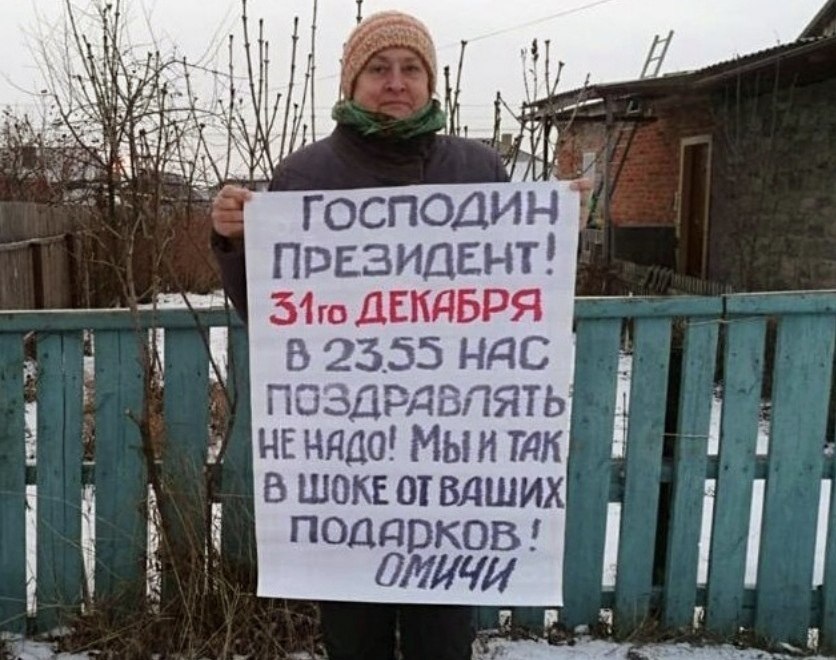 ГОСПОДИН
ПРЕЗИДЕНТ!
31го ДЕКАБРЯ
В 23.55 НАС
ПОЗДРАВЛЯТЬ
НЕ НАДО! МЫ И ТАК
В ШОКЕ ОТ ВАШИХ
ПОДАРКОВ!
ОМИЧИ